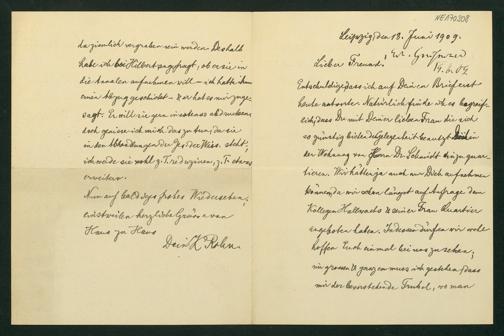 NEA70208
Leipzig den 18. Juni 1909.
Lieber Freund!
19.6.09
Entschuldige, dass ich auf Deinen Brief erst
heute antworte. Natürlich finde ich es begreif-
lich, dass Du mit Deiner lieben Frau die sich
so günstig bietende Gelegenheit benutzt
in
der Wohnung von Herrn Dr. Schmidt Euch zu quar-
tieren. Wir hätten ja auch nur Dich aufnehmen
können, da wir schon längst auf Anfrage dem
Kollegen Hallwachs u. seiner Frau Quartier
angeboten hatten. Indessen dürfen wir wohl
hoffen Euch einmal bei uns zu sehen;
im grossen u. ganzen muss ich gestehen, dass
mir der bevorstehende Trubel, wo man
da ziemlich vergraben sein werden. Deshalb
habe ich bei Hilbert angefragt, ob er sie in
die Annalen aufnehmen will — ich hatte ihm
einen Abzug geschickt — u. er hat es mir zuge-
sagt. Er will sie gern
doch geniere ich mich das zu thun, da sie
in den Abhandlungen der Ges. der Wiss. steht;
ich werde sie wohl z. T. reduzieren, z. T. etwas
erweitern.
Nun auf baldiges frohes Wiedersehen,
einstweilen herzliche Grüsse von
Haus zu Haus
Dein K. Rohn.